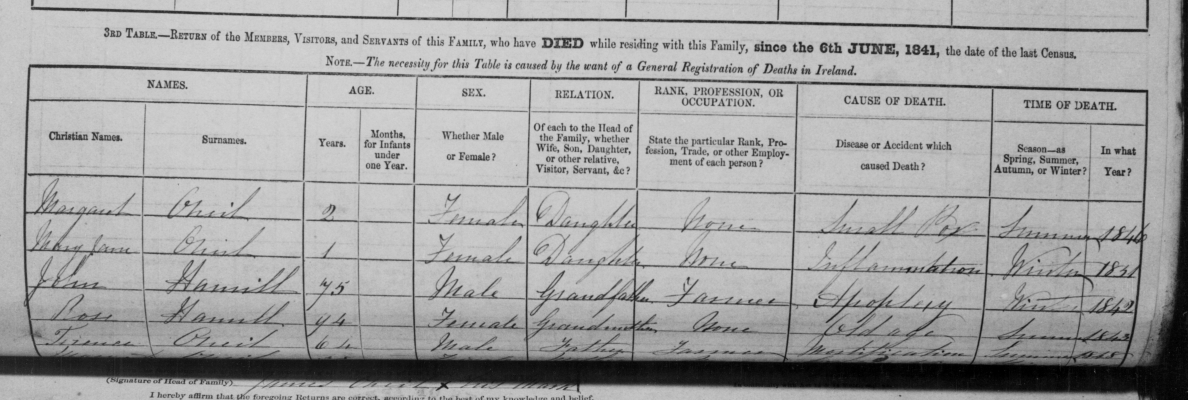 3RD TABLE.—RETURN of the MEMBERS, VISITORS, and SERVANTS of this FAMILY, who have DIED while residing with this Family, since the 6th JUNE, 1841, the date of the last Census.
NOTE.—The necessity for this Table is caused by the want of a General Registration of Deaths in Ireland.
NAMES. AGE. SEX. RELATION. RANK, PROFESSION, OR OCCUPATION. CAUSE OF DEATH. TIME OF DEATH.
Christian Names. Surnames. Years. Months, for Infants under one Year. Whether Male or Female? Of each to the Head of the Family, whether Wife, Son, Daughter, or other relative, Visitor, Servant, &c? State the particular Rank, Profession, Trade, or other Employment of each person? Disease or Accident which caused Death? Season—as Spring, Summer, Autumn, or Winter? In what Year?
Margaret Oneil 2 Female Daughter None Small Pox Summer 1846
Mary Jane Oneil 1 Female Daughter None Inflammation Winter 1851
John Hamill 75 Male Grandfather Farmer Apoplexy Winter 1842
Rose Hamill 94 Female Grandmother None Old age
Terence Oneil 64 Male Father Farmer Mortification
(Signature of Head of Family) James Oneil x his mark
I hereby affirm that the foregoing Returns are correct, according to the best of my knowledge and belief.